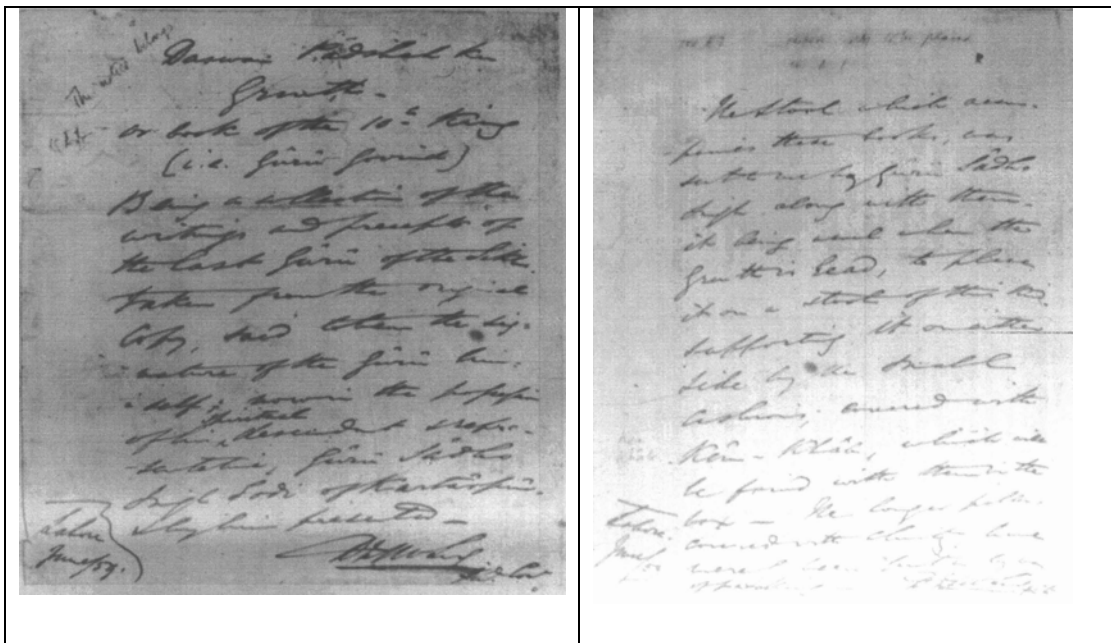 The notice belongs
Daswai Pādshah ke
Granth -
or book of the 10th King
(i.e. Gūrū Govind)
Being a collection of the
writings and precepts of
the last Gūrū of the Sikhs.
taken from the original
Copy, said to bear the sig-
nature of the Gūrū him-
self; now in the possession
of his spiritual descendant & repre-
sentative, Gūrū Sādhū
Singh Sodi of Kartārpūr.
& by him presented -
Lahore
June/59.
The Stool which accom-
panies these books, was
sent to me by Gūrū Sādhū
Singh along with them.
it being used when the
Granth is read, to place
it on a stool of this kind
supporting it on either
side by the small
cushions, covered with
Kim-Khāb, which will
be found with them in the
box - The longer pillow
covered with
Lahore.
June/